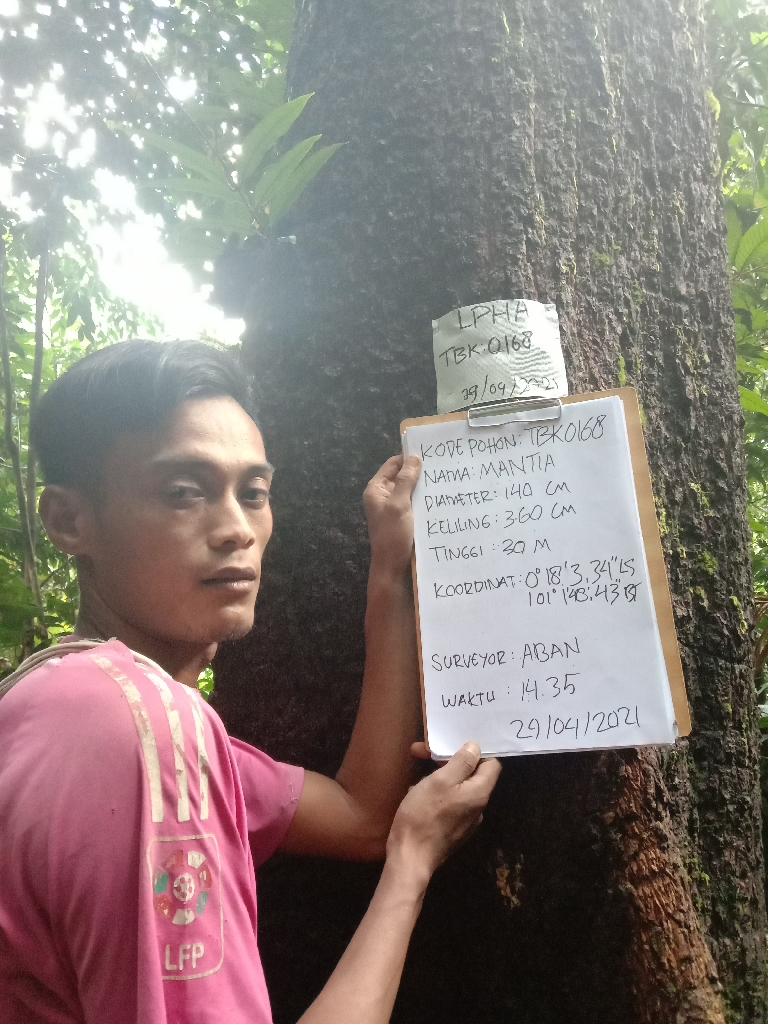 LPHA
TBK:0168
29/04/2021
KODE POHON: TBK0168
NAMA: MANTIA
DIAMETER: 140 CM
KELILING: 360 CM
TINGGI : 30 M
KOORDINAT: 0° 18' 3, 34" LS
101° 1'48, 43" BT
SURVEYOR: ABAN
WAKTU : 14.35
29/04/2021
LFP